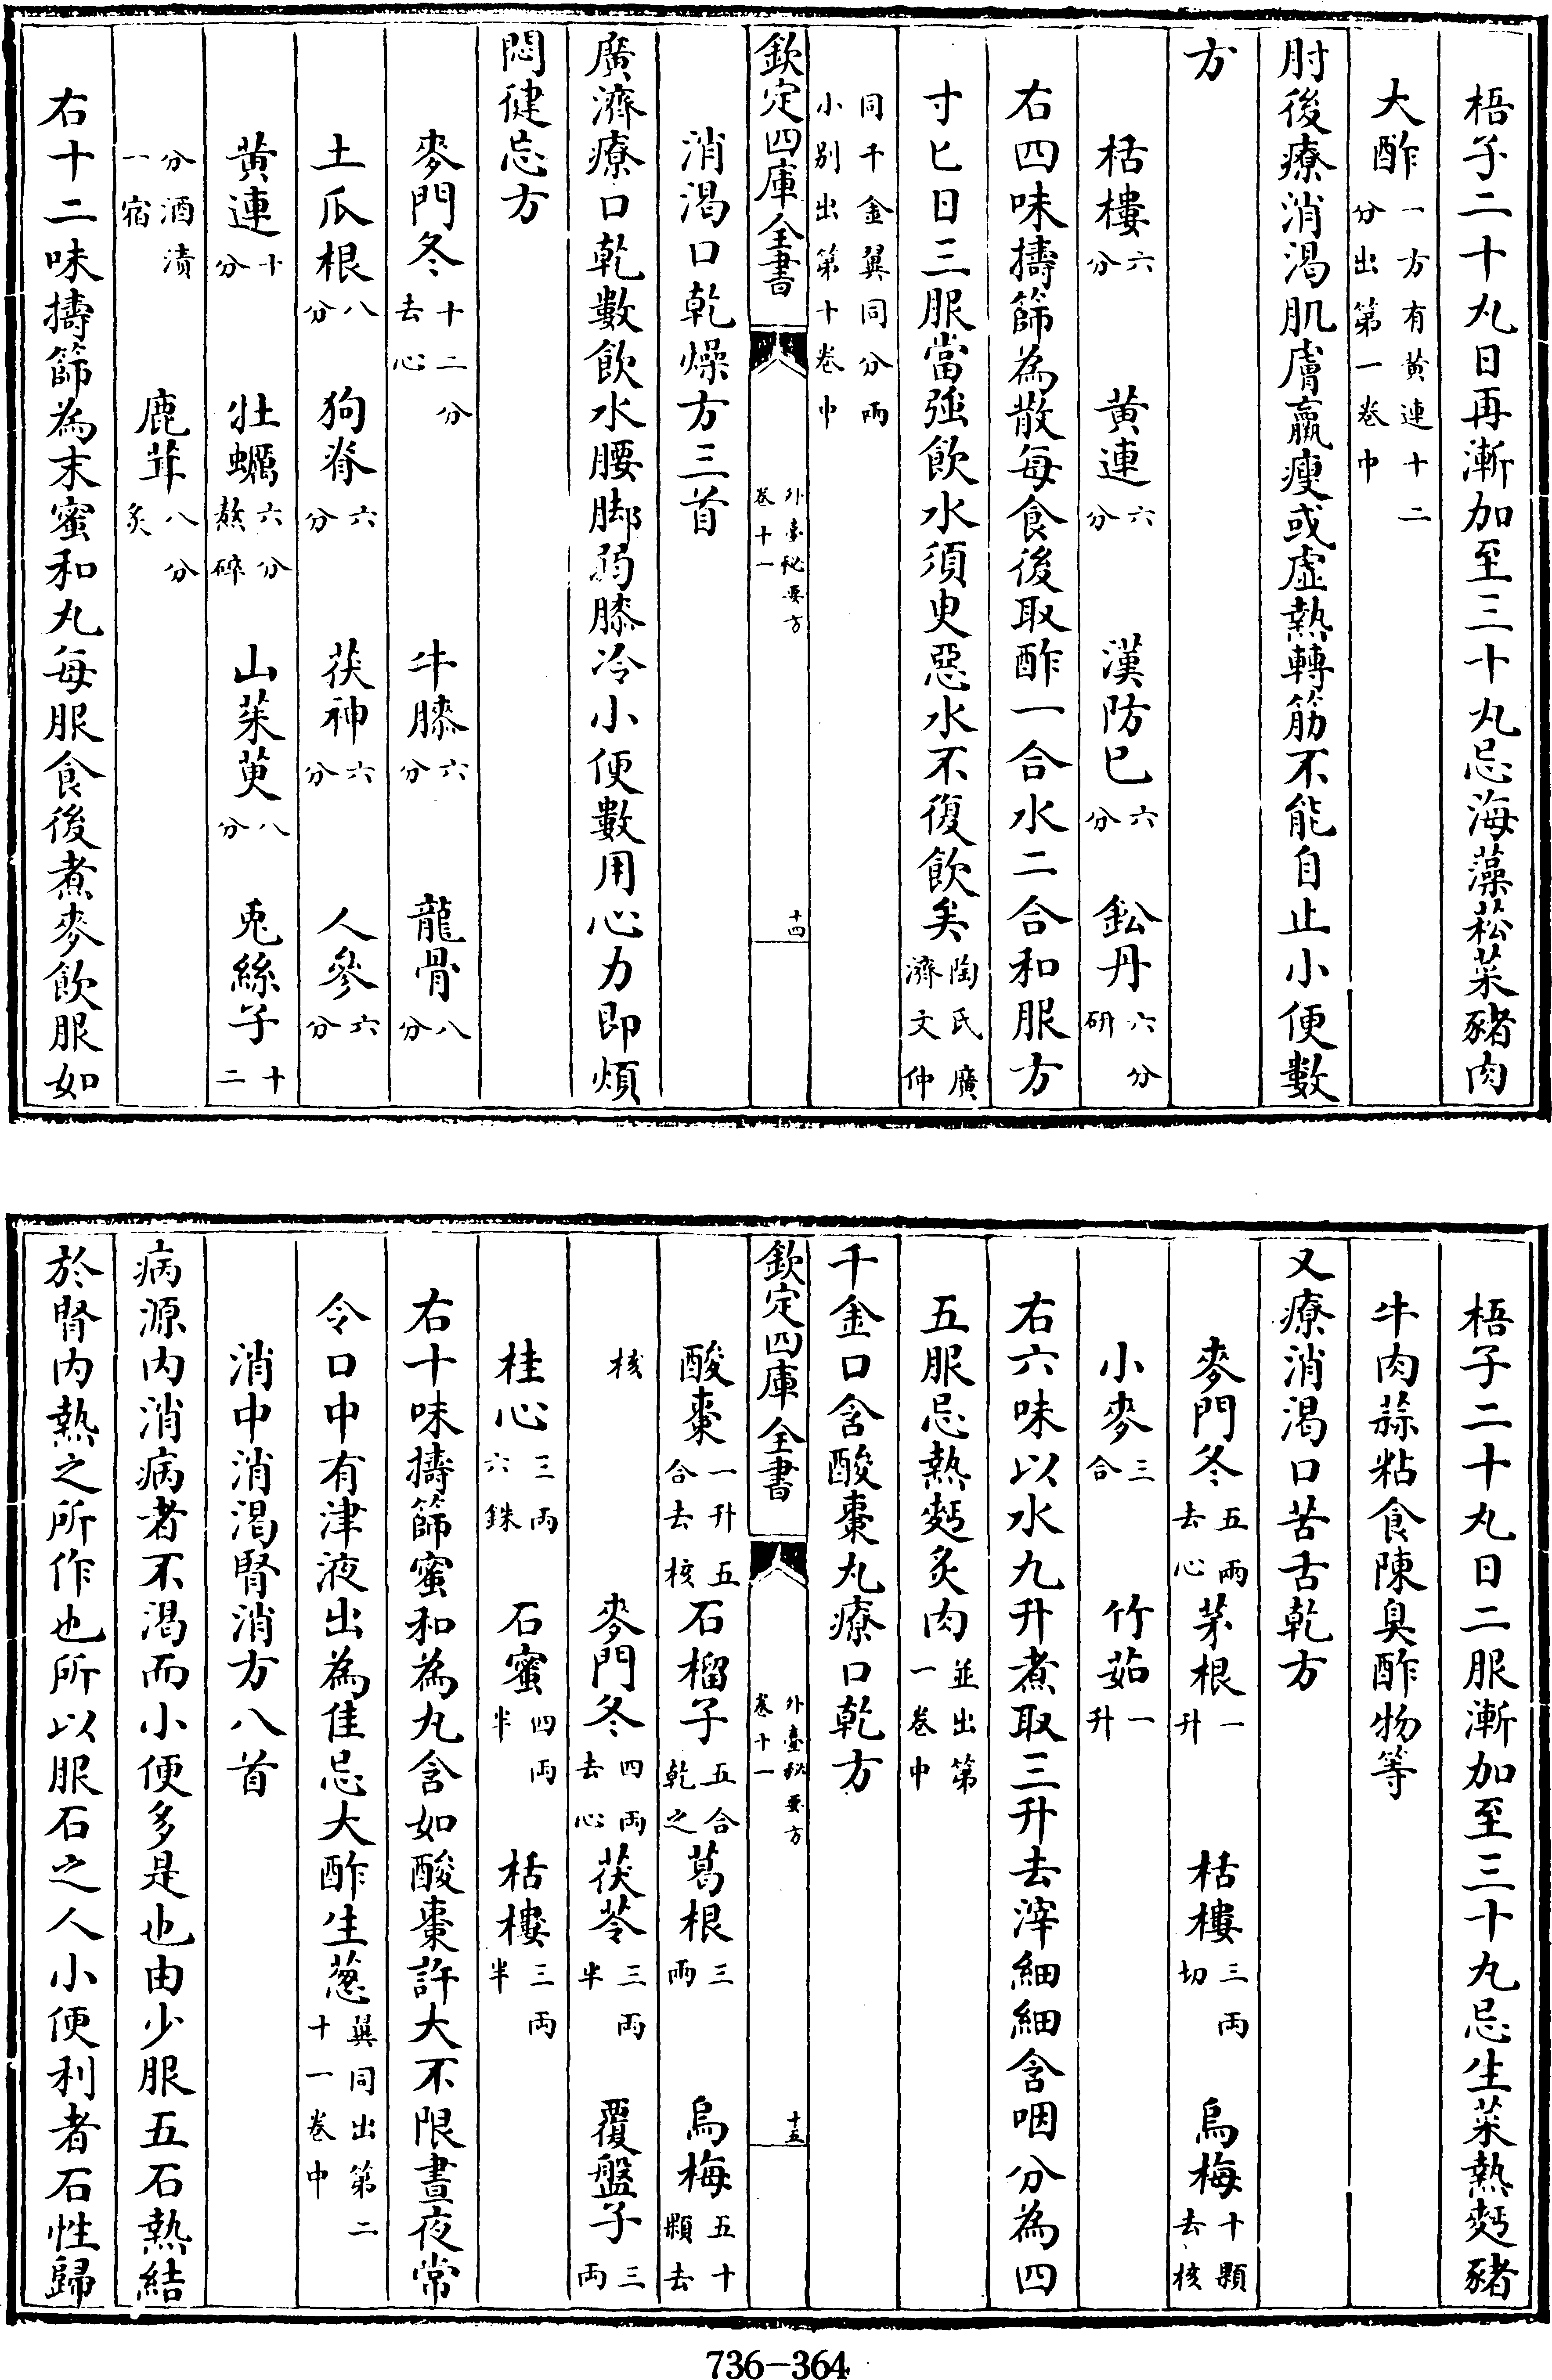 梧子二十丸日再漸加至三十丸忌海藻菘菜豬肉
大酢一方有黄連十二分出第一卷中
肘後療消渴肌膚羸瘦或虛熱轉筋不能自止小便數
方
栝樓六分 黄連六分 漢防已六分 鈆丹六分研
右四味擣篩為散每食後取酢一合水二合和服方
寸匕日三服當強飲水須臾惡水不復飲矣陶氏廣濟文仲
同千金翼同分兩小别出第十卷中
欽定四庫全書 外臺秘要方卷十一 十四
消渴口乾燥方三首
廣濟療口乾數飲水腰脚弱膝冷小便數用心力即煩
悶健忘方
麥門冬十二分去心 牛膝六分 龍骨八分
土瓜根八分 狗脊六分 茯神六分 人參六分
黄連十分 牡蠣六分熬碎 山茱萸八分 兎絲子十二
分酒漬一宿 鹿茸八分炙
右十二味擣篩為末蜜和丸每服食後煮麥飲服如
梧子二十丸日二服漸加至三十丸忌生菜熱麪豬
牛肉蒜粘食陳臭酢物等
又療消渴口苦舌乾方
麥門冬五兩去心 茅根一升 栝樓三兩切 烏梅十顆去核
小麥三合 竹茹一升
右六味以水九升煮取三升去滓細細含咽分為四
五服忌熱麪炙肉並出第一卷中
千金口含酸棗丸療口乾方
欽定四庫全書 外臺秘要方卷十一 十五
酸棗一升五合去核 石榴子五合乾之 葛根三兩 烏梅五十顆去
核 麥門冬四兩去心 茯苓三兩半 覆盤子三兩
桂心三兩六銖 石蜜四兩半 栝樓三兩半
右十味擣篩蜜和為丸含如酸棗許大不限晝夜常
令口中有津液出為佳忌大酢生葱翼同出第二十一卷中
消中消渴腎消方八首
病源内消病者不渴而小便多是也由少服五石熱結
於腎内熱之所作也所以服石之人小便利者石性歸
736-364